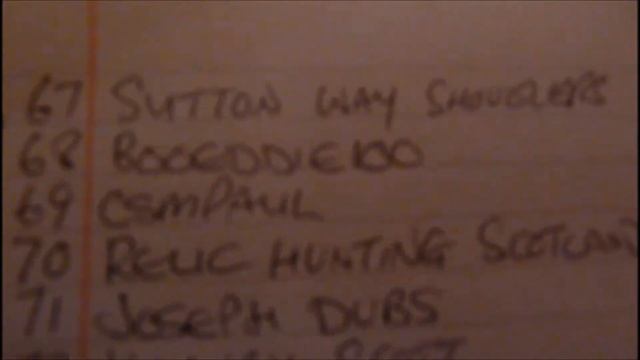 67 SUTTON WAY SHOVELERS
68 BOOEDDIE100
69 CSMPAUL
70 RELIC HUNTING SCOTLAND
71 JOSEPH DUBS